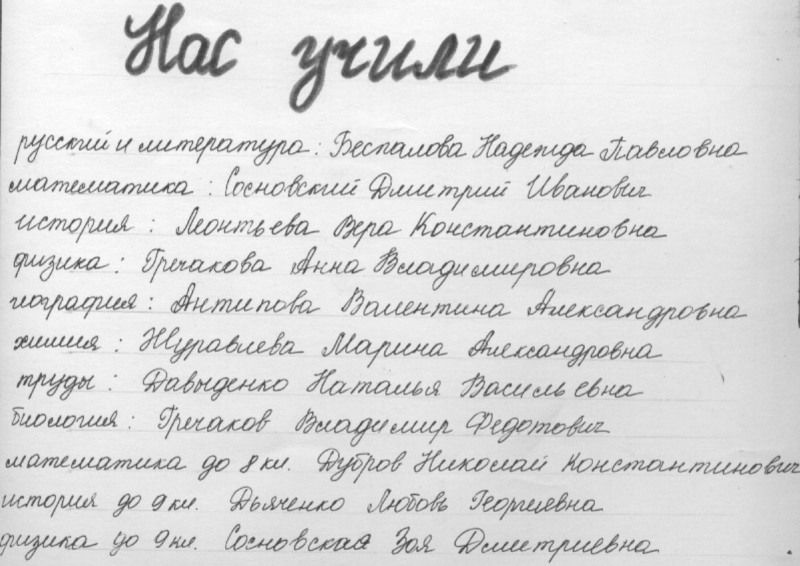 Нас учили
русский и литература: Беспалова Надежда Павловна
математика: Сосновский Дмитрий Иванович
история: Леонтьева Вера Константиновна
физика: Гречакова Анна Владимировна
география: Антипова Валентина Александровна
химия: Журавлева Марина Александровна
труды: Давыденко Наталья Васильевна
биология: Гречаков Владимир Федотович
математика до 8 кл. Дубров Николай Константинович
история до 9 кл. Дьяченко Любовь Георгиевна
физика до 9 кл. Сосновская Зоя Дмитриевна